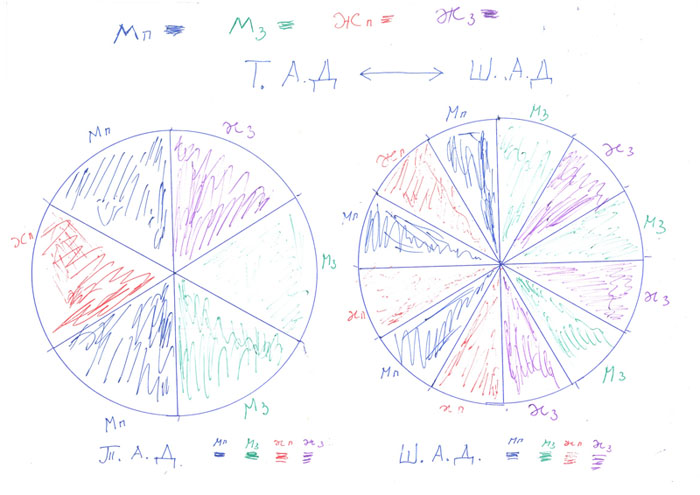 Мп Мз Жп Жз
Т. А.Д. Ш. А.Д
Мп Жз
Жп Мз
Мп Мз
Мп Мз
Жп Жз
Мп Мз
Жп Жз
Мп Мз
Жп Жз
Т. А. Д. Мп Мз Жп Жз
Ш. А. Д. Мп Мз Жп Жз